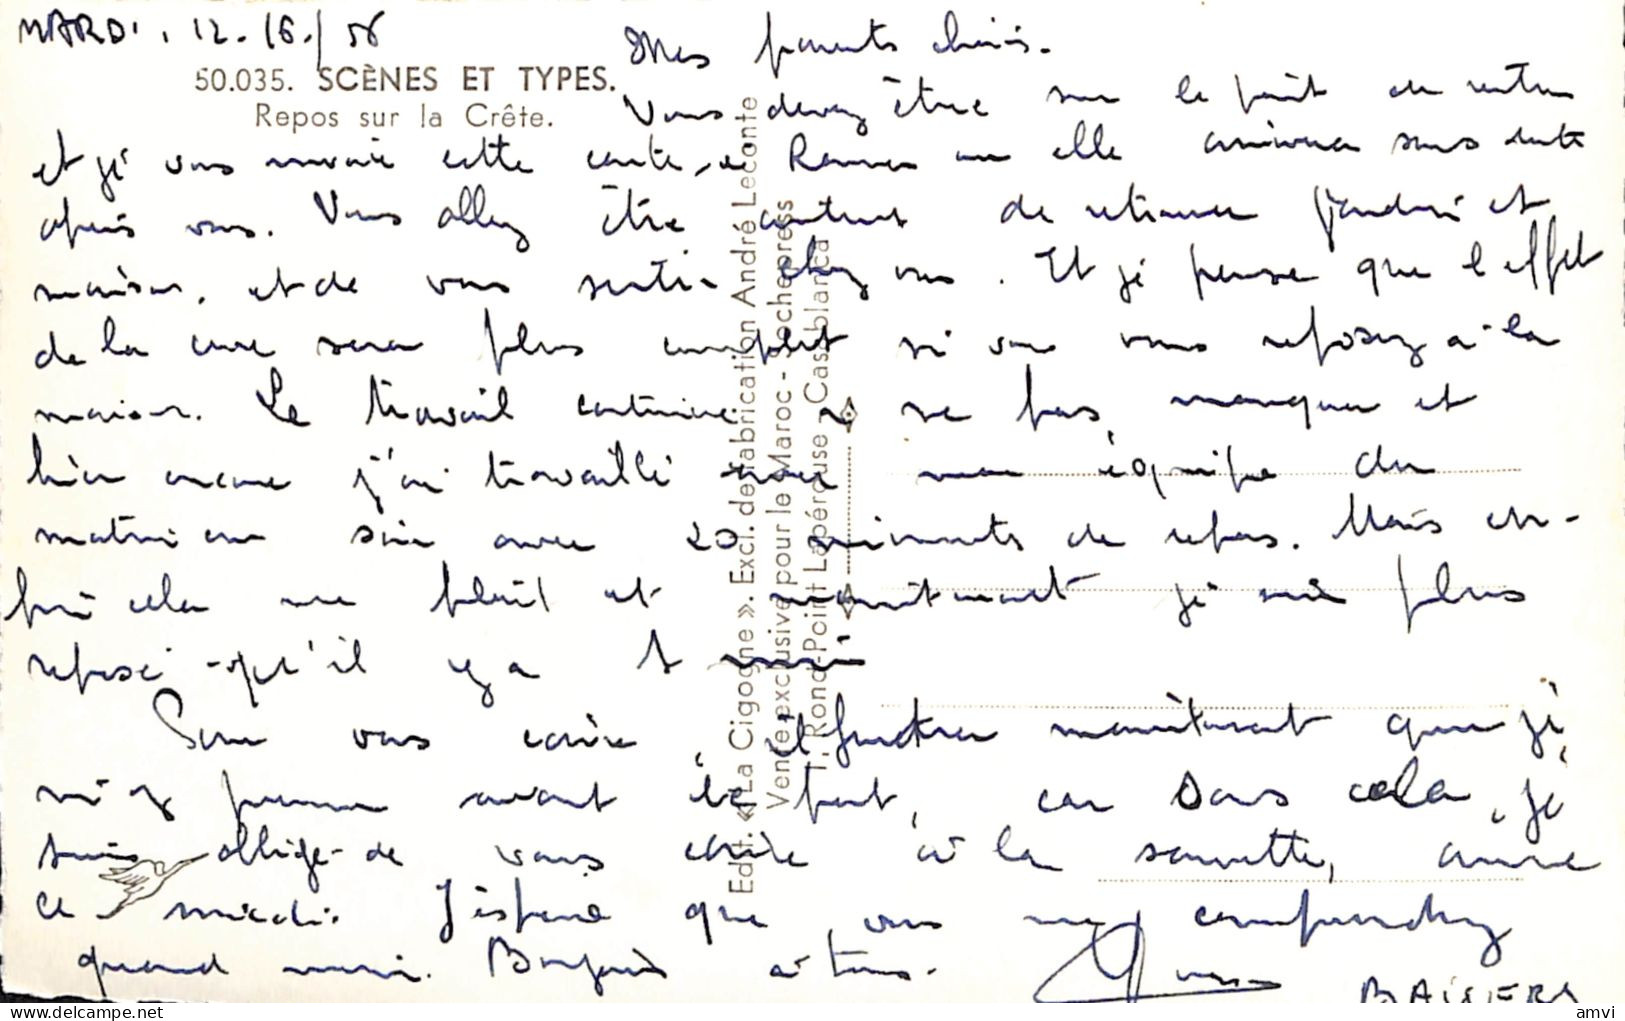 MARDI. 12./6./56
50.035. SCÈNES ET TYPES.
Repos sur la Crête.
Mes parents chéris.
Vous devez être sur le point de rentrer
et je vous envoie cette carte à Rennes où elle arrivera sans doute
après vous. Vous allez être contents de retrouver jardin et
maison, et de vous sentir chez vous. Et je pense que l'effet
de la cure sera plus complet si vous vous reposez à la
maison. Le travail continue à ne pas manquer et
hier encore j'ai travaillé avec mon équipe du
matin au soir avec 20 minutes de repos. Mais en-
fin cela me plaît et maintenant je suis plus
reposé qu'il y a 1 mois
Pour vous écrire, il faudra maintenant que je
m'y prenne avant le fort, car sans cela, je
suis obligé de vous écrire à la sauvette, comme
ce midi. J'espère que vous me comprendrez
quand même. Bonjour à tous.
BAISERS
Edit. «La Cigogne». Excl. de fabrication André Leconte
Vente exclusive pour le Maroc - Sochepress
1, Rond-Point Lapérouse - Casablanca
amvi